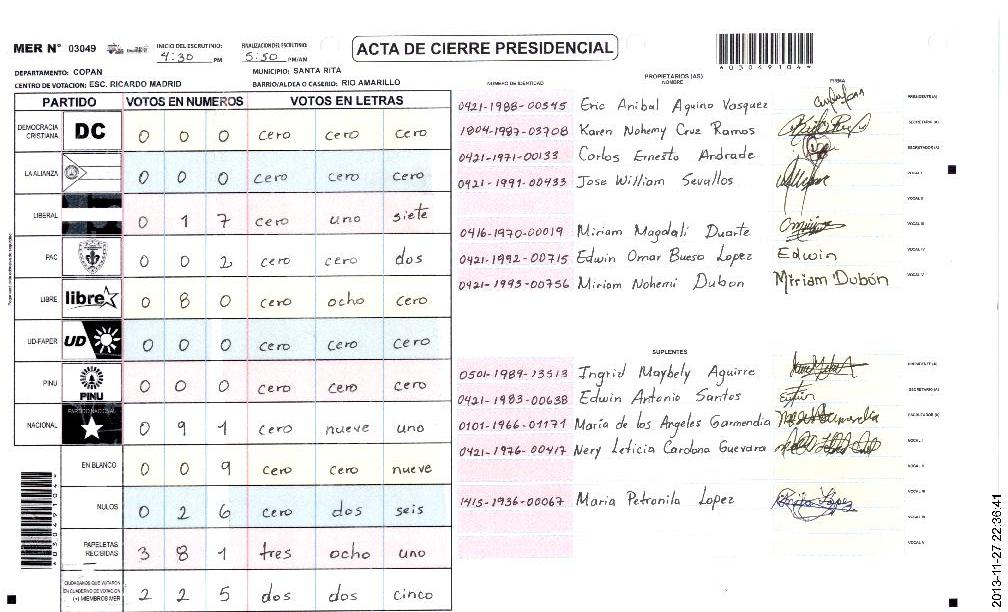 MER N° 03049
INICIO DEL ESCRUTINIO: 4:30 PM
FINALIZACION DEL ESCRUTINIO: 5:50 PM/AM
ACTA DE CIERRE PRESIDENCIAL
DEPARTAMENTO: COPAN
MUNICIPIO: SANTA RITA
CENTRO DE VOTACION: ESC. RICARDO MADRID
BARRIO/ALDEA O CASERIO: RIO AMARILLO
4030491044
PARTIDO VOTOS EN NUMEROS VOTOS EN LETRAS
DEMOCRACIA CRISTIANA DC 0 0 0 cero cero cero
LA ALIANZA 0 0 0 cero cero cero
LIBERAL 0 1 7 cero uno siete
PAC 0 0 2 cero cero dos
LIBRE libre 0 8 0 cero ocho cero
UD-FAPER UD 0 0 0 cero cero cero
PINU PINU 0 0 0 cero cero cero
NACIONAL PARTIDO NACIONAL 0 9 1 cero nueve uno
EN BLANCO 0 0 9 cero cero nueve
NULOS 0 2 6 cero dos seis
PAPELETAS RECIBIDAS 3 8 1 tres ocho uno
CIUDADANOS QUE VOTARON EN CUADERNO DE VOTACION (+) MIEMBROS MER 2 2 5 dos dos cinco
PROPIETARIOS (AS)
NUMERO DE IDENTIDAD NOMBRE FIRMA
0421-1988-00545 Eric Anibal Aquino Vasquez PRESIDENTE (A)
1804-1987-03708 Karen Nohemy Cruz Ramos SECRETARIO (A)
0421-1971-00133 Carlos Ernesto Andrade ESCRUTADOR (A)
0421-1991-00433 Jose William Sevallos VOCAL I
VOCAL II
0416-1970-00019 Miriam Magdali Duarte VOCAL III
0421-1992-00715 Edwin Omar Bueso Lopez Edwin VOCAL IV
0421-1993-00756 Miriam Nohemi Dubon Miriam Dubón VOCAL V
SUPLENTES
0501-1989-13513 Ingrid Maybely Aguirre PRESIDENTE (A)
0421-1983-00638 Edwin Antonio Santos SECRETARIO (A)
0101-1966-01171 Maria de los Angeles Garmendia ESCRUTADOR (A)
0421-1976-00417 Nery Leticia Cardona Guevara VOCAL I
VOCAL II
1415-1936-00067 Maria Petronila Lopez VOCAL III
VOCAL IV
VOCAL V
2013-11-27 22:36:41